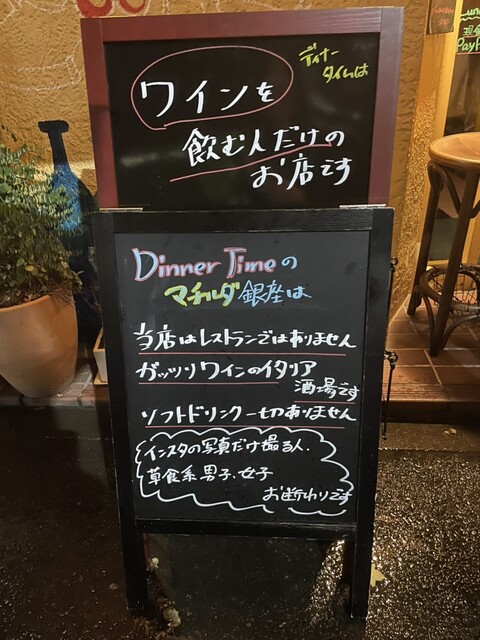 ディナー
タイムは
ワインを
飲む人だけの
お店です
Dinner Timeの
マチルダ 銀座は
当店はレストランではありません
ガッツリワインのイタリア
酒場です
ソフトドリンク一切ありません
インスタの写真だけ撮る人、
草食系男子、女子
お断わりです
Lunc